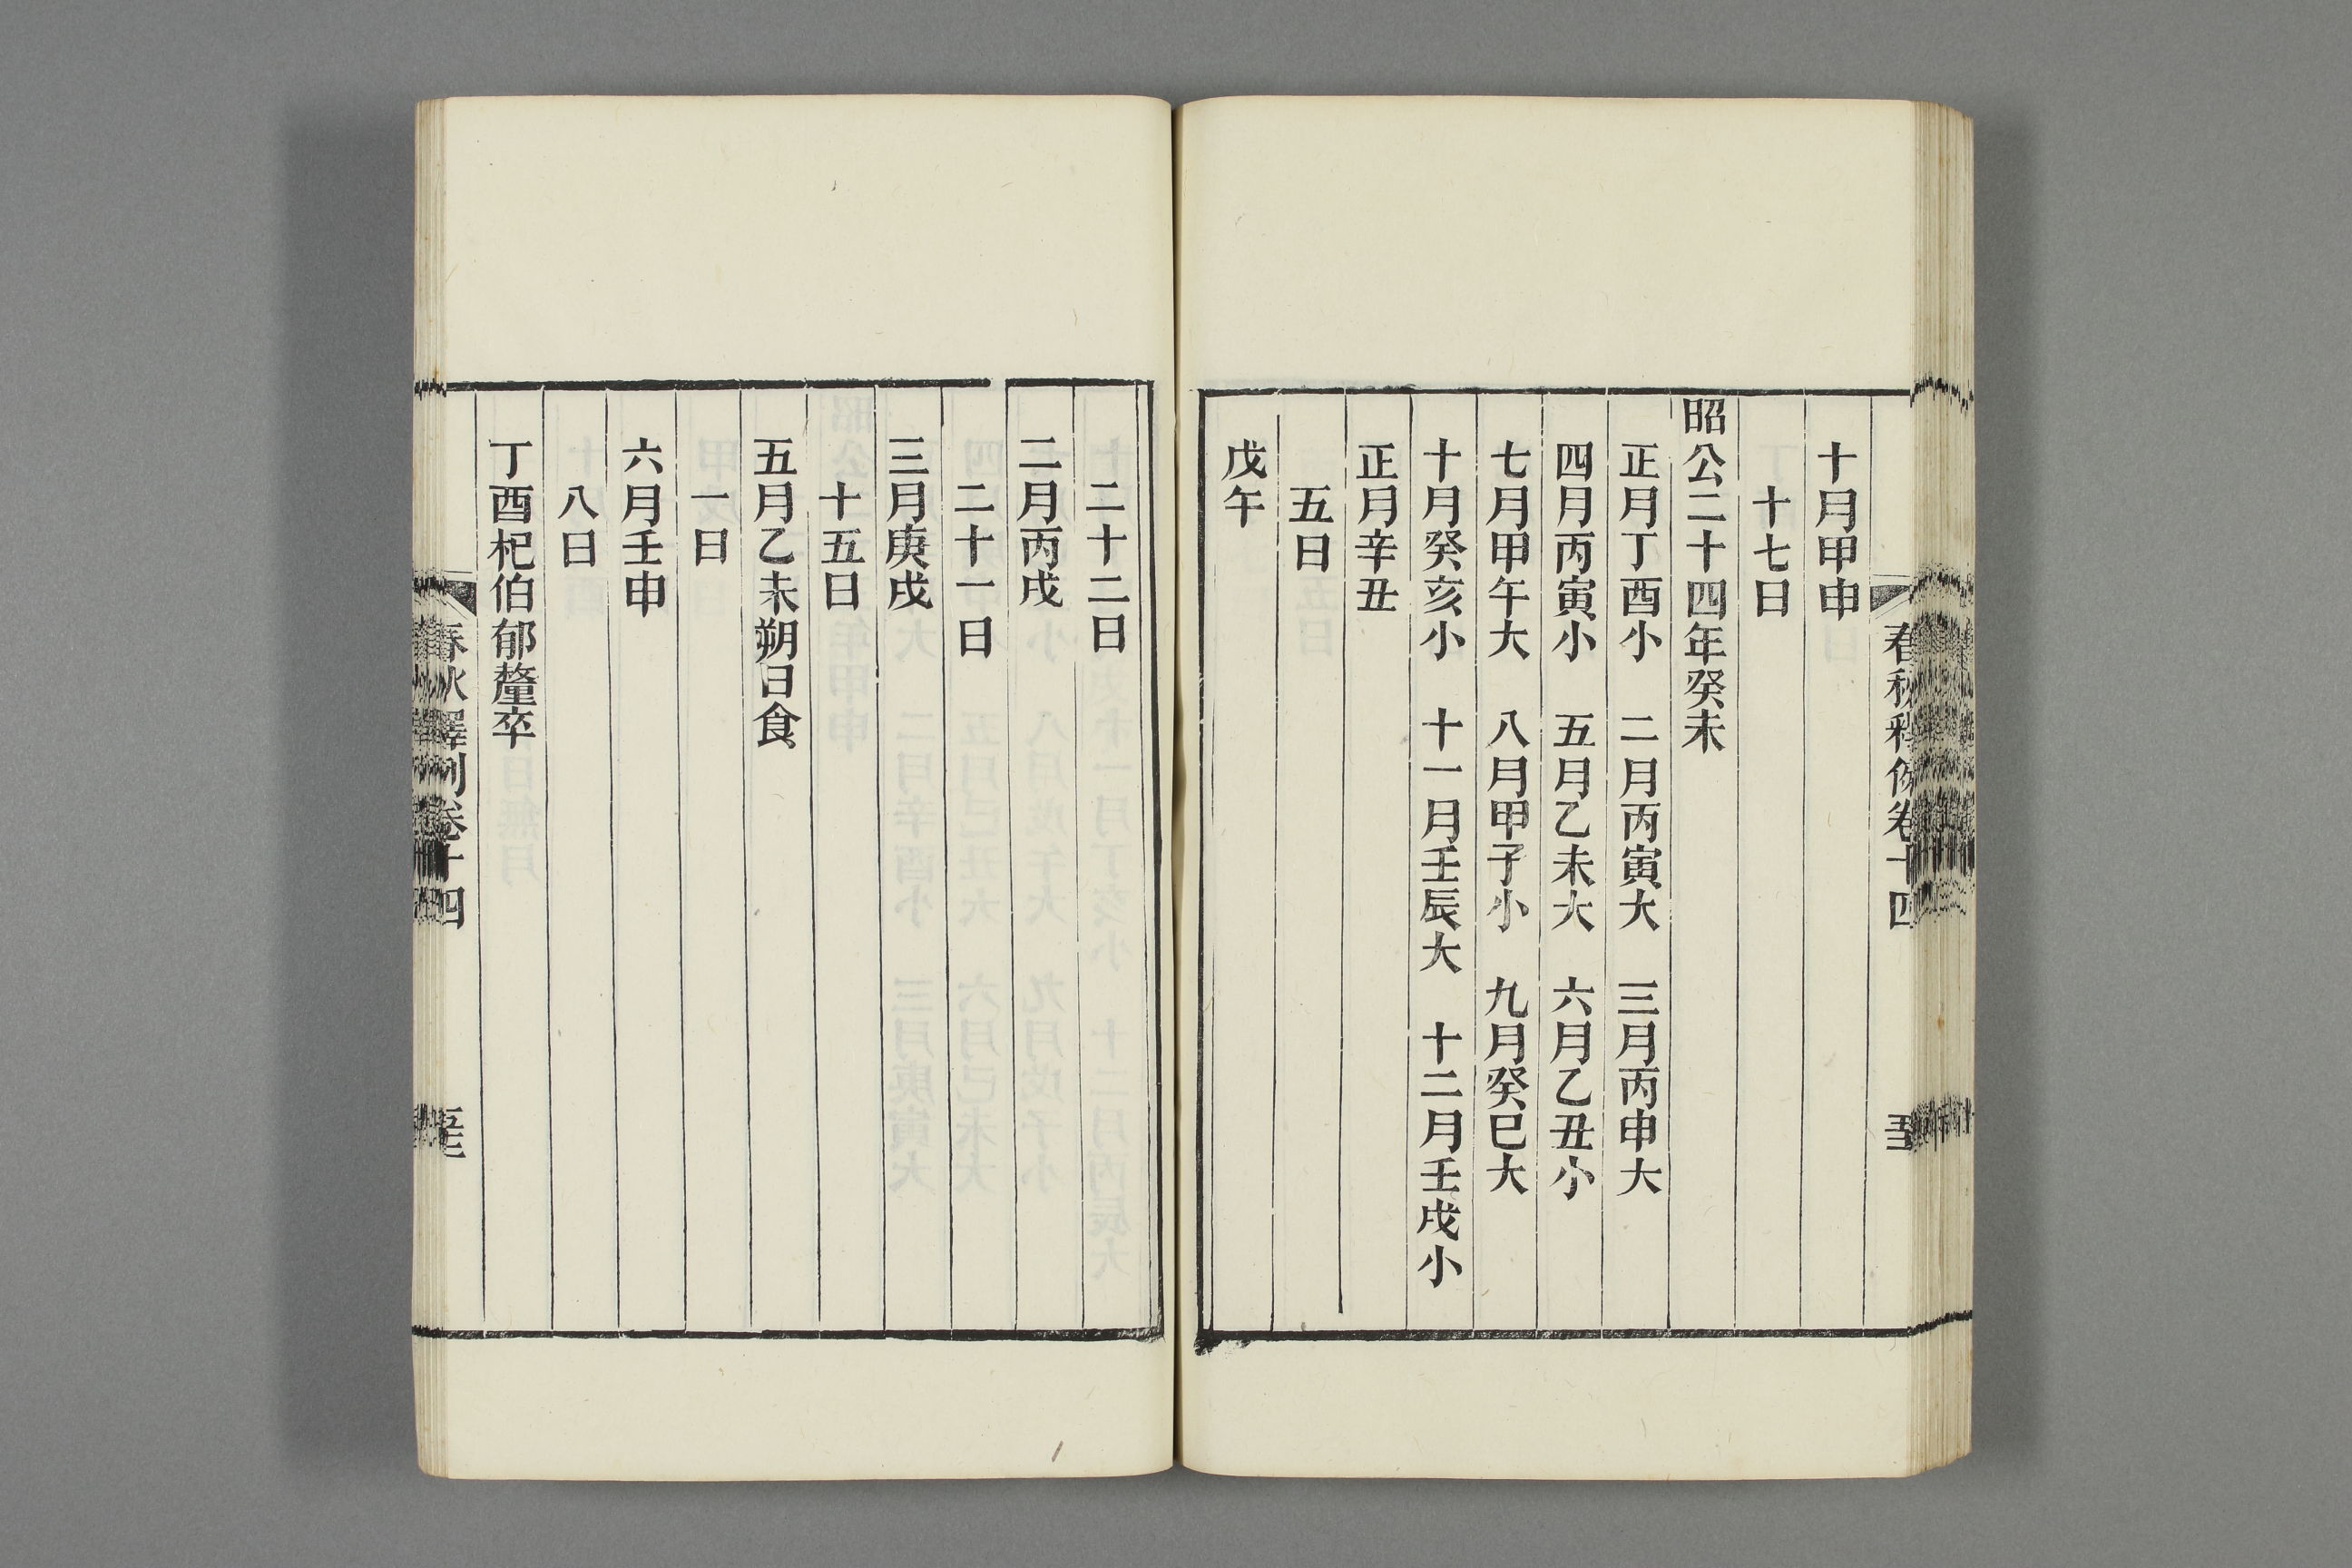 春秋釋例卷十四
十月甲申
十七日
昭公二十四年癸未
正月丁酉小　二月丙寅大　三月丙申大
四月丙寅小　五月乙未大　六月乙丑小
七月甲午大　八月甲子小　九月癸巳大
十月癸亥小　十一月壬辰大　十二月壬戌小
正月辛丑
五日
戊午
二十二日
二月丙戌
二十一日
三月庚戌
十五日
五月乙未朔日食
一日
六月壬申
八日
丁酉杞伯郁釐卒
春秋釋例卷十四